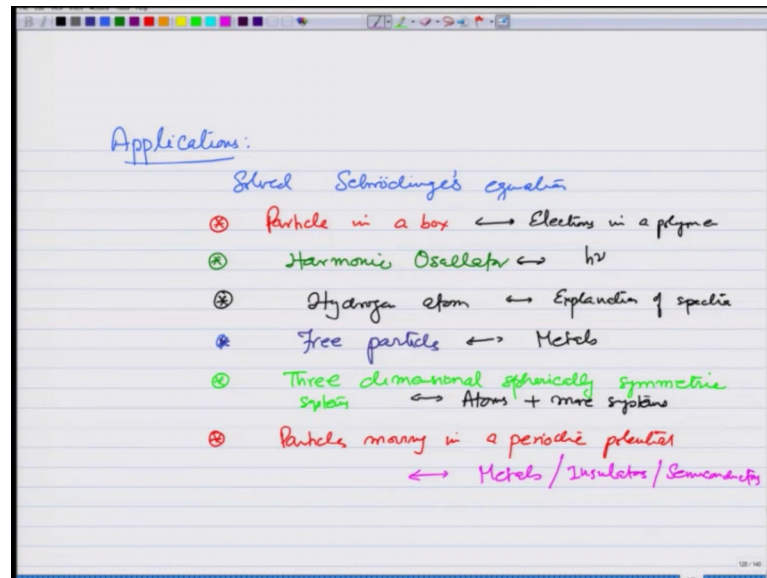 Applications:
Solved Schrödinger's equation
Particle in a box ⟷ Electrons in a polyme
Harmonic Oscillator ⟷ hν
Hydrogen atom ⟷ Explanation of spectra
Free particles ⟷ Metals
Three dimensional spherically symmetric
systems ⟷ Atoms + more systems
Particles moving in a periodic potential
⟷ Metals / Insulators / Semiconductors